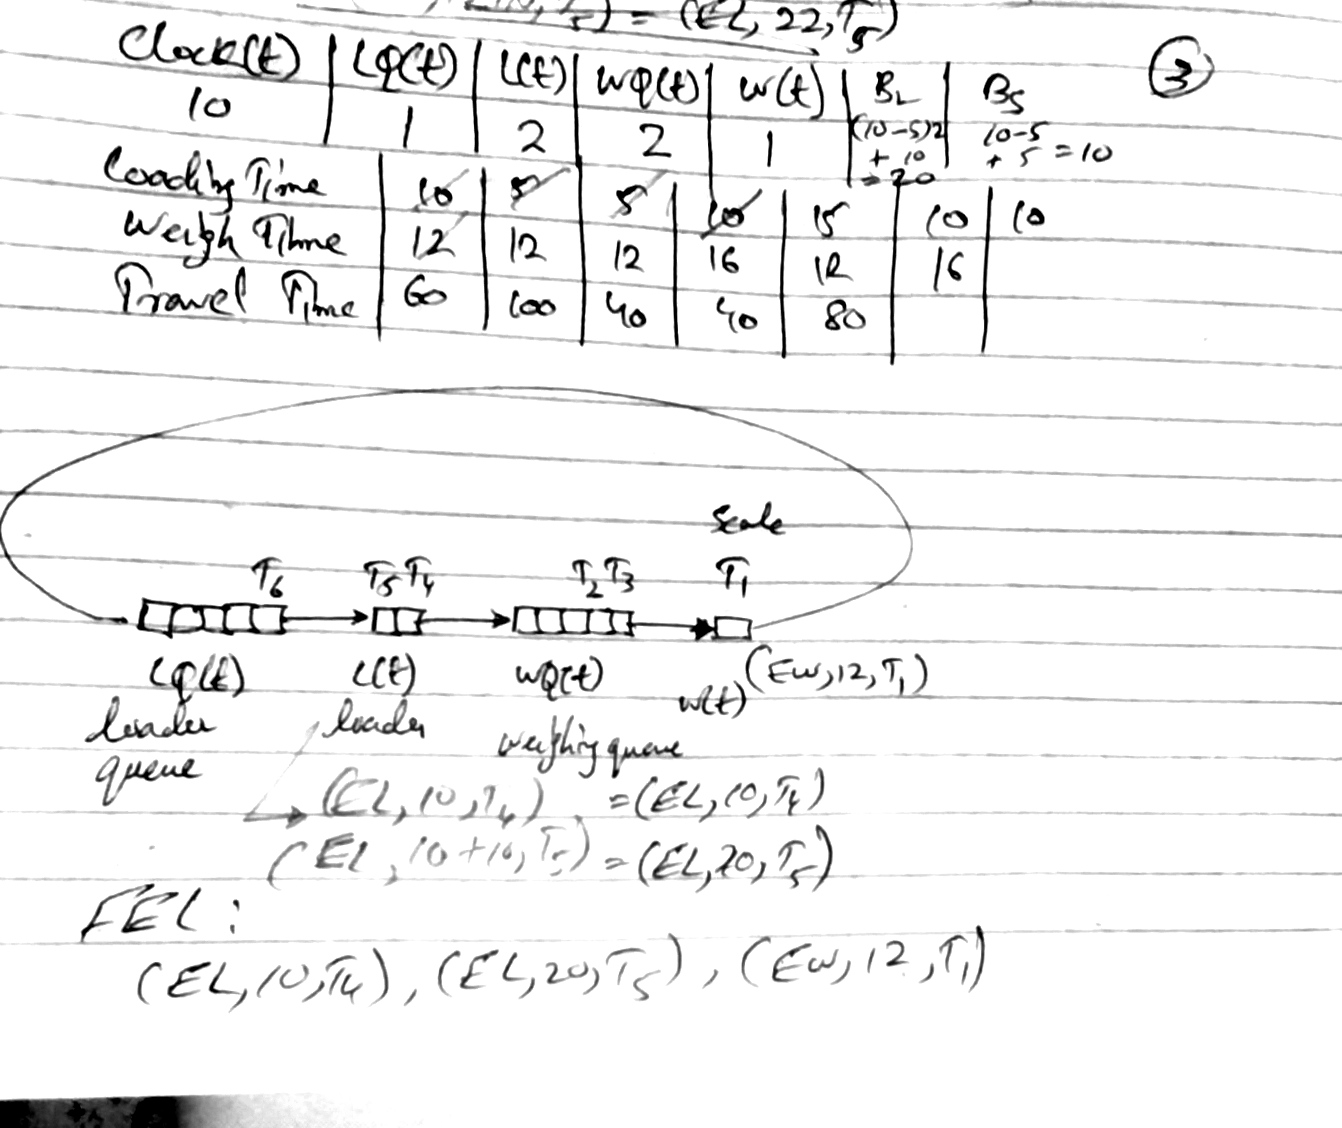 ) = (EL, 22, T5)
3
Clock(t) LQ(t) L(t) WQ(t) w(t) BL BS
10 1 2 2 1 (10-5)2 + 10 = 20 10-5 + 5 = 10
Loading Time 10 5 5 10 15 10 10
Weigh Time 12 12 12 16 12 16
Travel Time 60 100 40 40 80
Scale
T6 T5 T4 T2 T3 T1
LQ(t) L(t) WQ(t) w(t) (EW,12,T1)
loader queue loader weighing queue
(EL,10,T4) = (EL,10,T4)
(EL,10+10,T5) = (EL,20,T5)
FEL:
(EL,10,T4), (EL,20,T5), (EW,12,T1)